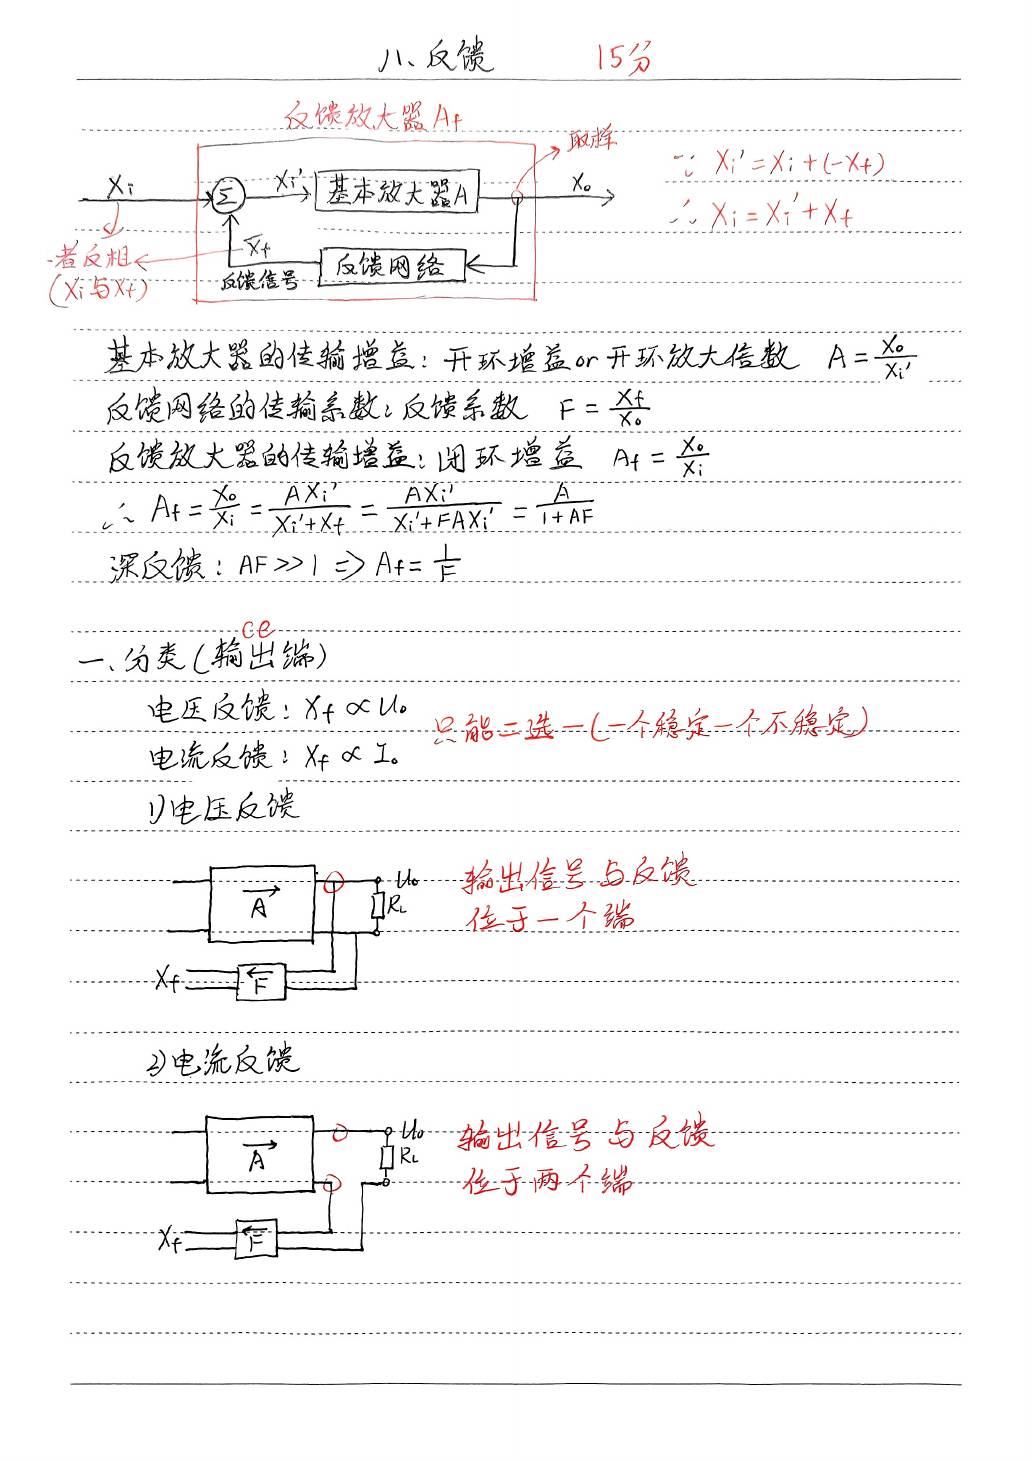 八、反馈 15分
反馈放大器 Af
取样
Xi Σ Xi' 基本放大器A Xo
∵ Xi'=Xi+(-Xf)
∴ Xi=Xi'+Xf
Xf
反馈信号 反馈网络
者反相
(Xi与Xf)
基本放大器的传输增益:开环增益or开环放大倍数 A=Xo/Xi'
反馈网络的传输系数:反馈系数 F=Xf/Xo
反馈放大器的传输增益:闭环增益 Af=Xo/Xi
∴ Af=Xo/Xi=AXi'/(Xi'+Xf)=AXi'/(Xi'+FAXi')=A/(1+AF)
深反馈:AF>>1⇒Af=1/F
ce
一、分类(输出端)
电压反馈:Xf∝Uo
只能二选一(一个稳定一个不稳定)
电流反馈:Xf∝Io
1)电压反馈
A Uo RL
F Xf
输出信号与反馈
位于一个端
2)电流反馈
A Uo RL
F Xf
输出信号与反馈
位于两个端